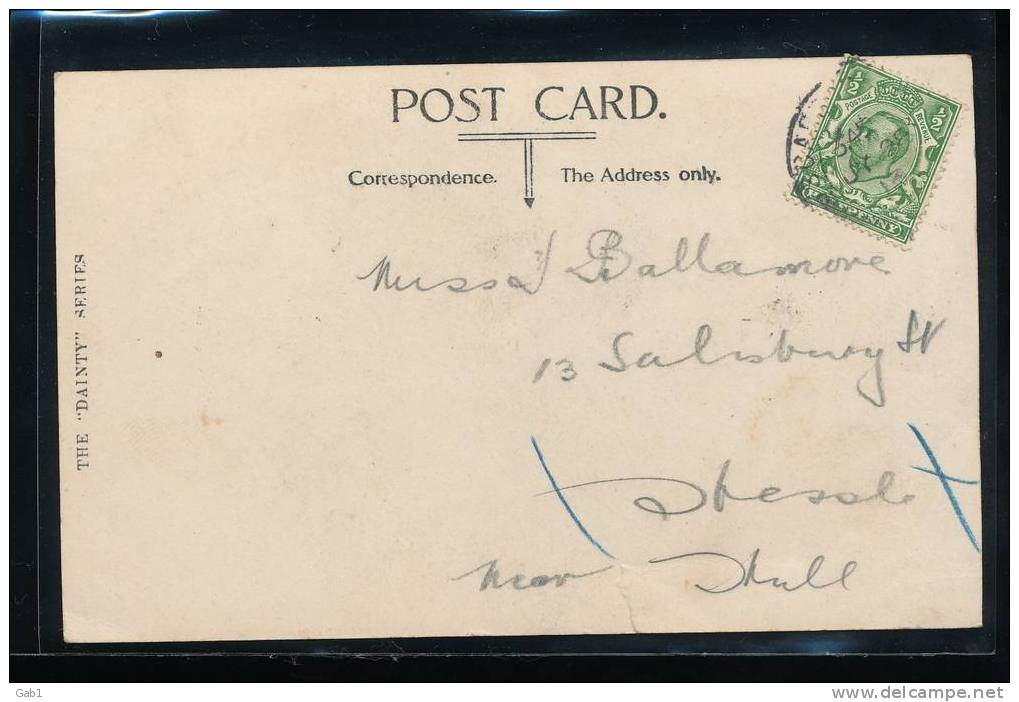 POST CARD.
Correspondence. The Address only.
½ ½
POSTAGE REVENUE
HALFPENNY
Miss J Ballamore
13 Salisbury St
Hessle
Near Hull
THE "DAINTY" SERIES
Gab1
www.delcampe.net